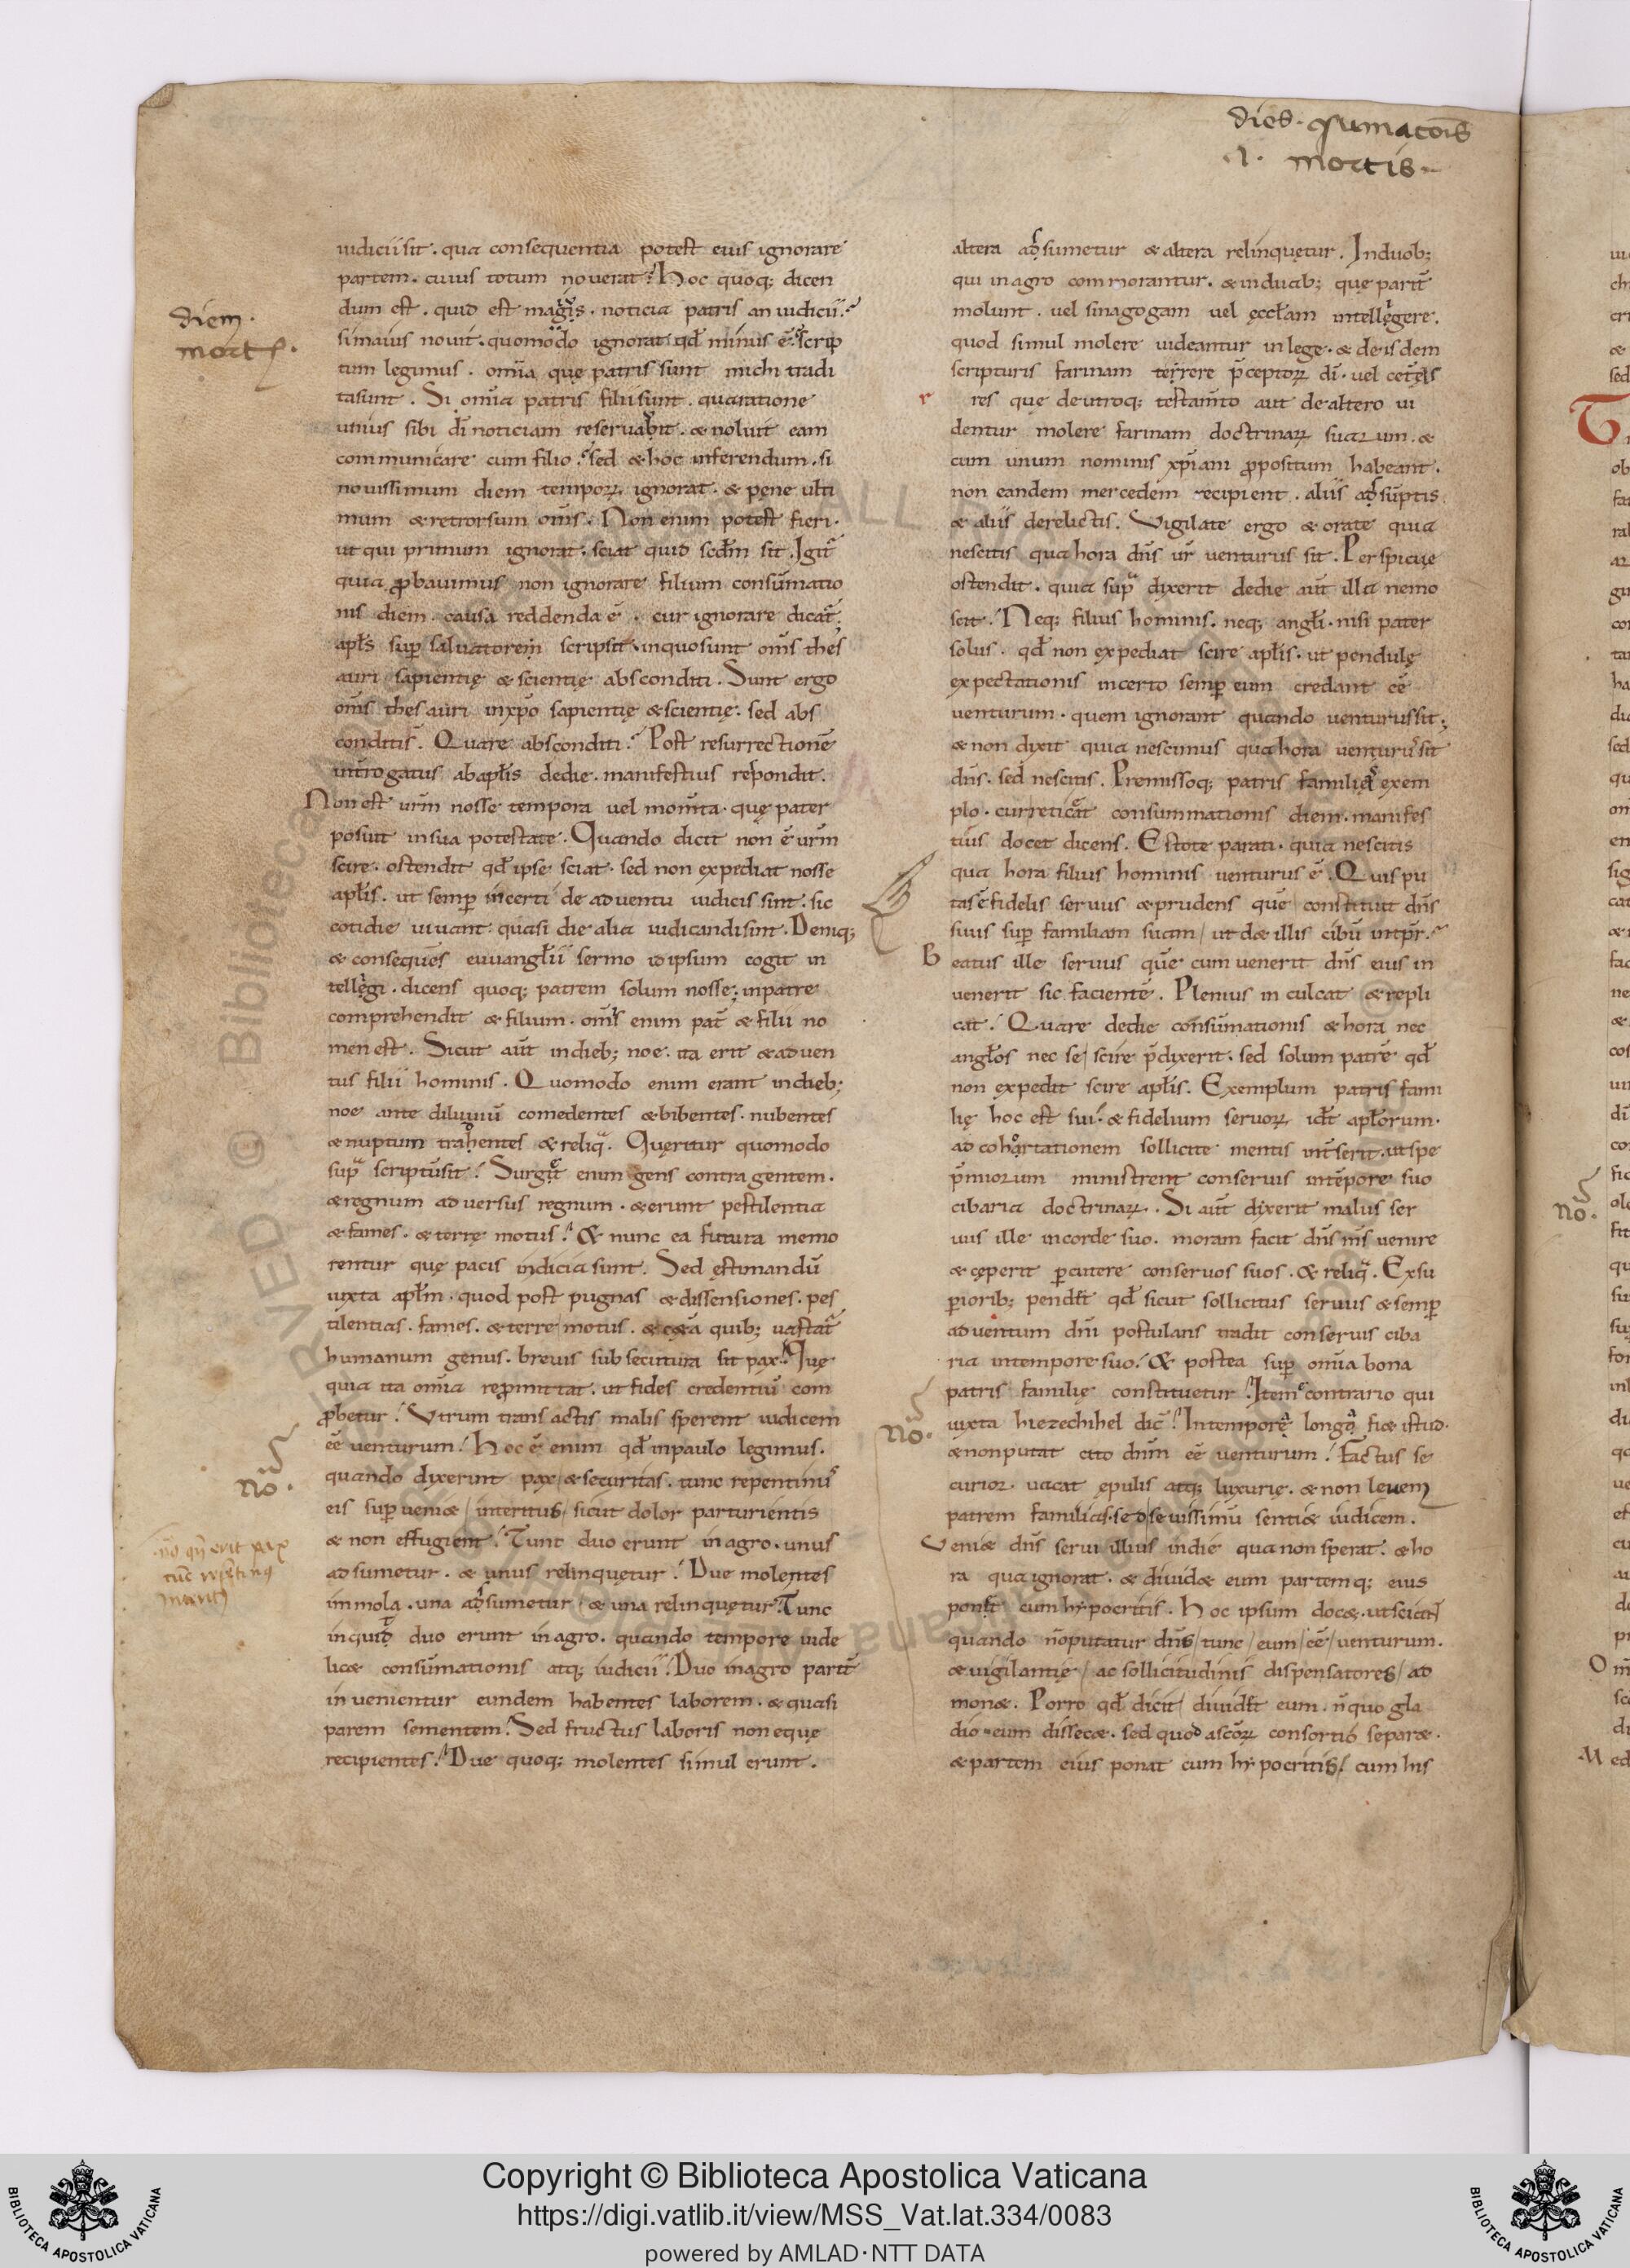 dies. ꝯsumac̄ois
.i. mortis.
diem.
mortis.
iudicii sit. qua consequentia potest eius ignorare
partem. cuius totum noverat? Hoc quoq; dicen
dum est. quid est magis. noticia patris an iudicii?
si maius novit. quomodo ignorat qd̄ minus ē? scrip
tum legimus. om̄ia quę patris sunt michi tradi
ta sunt. Si om̄ia patris filii sunt. qua ratione
unius sibi diei noticiam reservabit. & noluit eam
communicare cum filio? sed & hoc inferendum. si
novissimum diem temporꝝ ignorat. & pęne ulti
mum & retrorsum om̄s. Non enim potest fieri.
ut qui primum ignorat. sciat quid scd̄m sit. Igit᷑
quia ꝓbavimus non ignorare filium consūmatio
nis diem. causa reddenda ē. cur ignorare dicat᷑.
apl̄s sup̄ salvatorem scripsit. in quo sunt om̄s thes
auri sapientię & scientię absconditi. Sunt ergo
om̄s thesauri in xp̄o sapientię & scientię. sed abs
conditi. Quare absconditi? Post resurrectionē
int̄rogatus ab apl̄is de die. manifestius respondit.
Non est ur̄m nosse tempora vel mom̄ta. quę pater
posuit in sua potestate. Quando dicit non ē ur̄m
scire. ostendit qd̄ ipse sciat. sed non expediat nosse
apl̄is. ut semp̄ incerti de adventu iudicis sint. sic
cotidie vivant quasi die alia iudicandi sint. Deniq;
& consequēs euuangl̄ii sermo id ipsum cogit in
tellegi. dicens quoq; patrem solum nosse; in patre
comprehendit & filium. om̄is enim pat̄ & filii no
men est. Sicut aūt in dieb; noe. ita erit & adven
tus filii hominis. Quomodo enim erant in dieb;
noe ante diluviū comedentes & bibentes. nubentes
& nuptum trahentes & reliq̄. Quęritur quomodo
supᵃ scriptū sit? Surget enim gens contra gentem.
& regnum adversus regnum. & erunt pestilentia
& fames. & terrę motus? & nunc ea futura memo
rentur quę pacis indicia sunt. Sed ęstimandū
iuxta apl̄m. quod post pugnas & dissensiones. pes
tilentias. fames. & terre motus. & c&ᵃ quib; vastat᷑
humanum genus. brevis subsecutura sit pax. Quę
quia ita om̄ia repromittat. ut fides credentiū com
ꝓbetur? Utrum transactis malis sperent iudicem
eē venturum? Hoc ē enim qd̄ in paulo legimus.
quando dixerint pax & securitas. tunc repentinus
eis sup̄veni& interitus sicut dolor parturientis
& non effugient? Tunc duo erunt in agro. unus
adsumetur. & unus relinquętur? Due molentes
in mola. una adsumetur & una relinquętur. Tunc
inquid duo erunt in agro. quando tempore vide
lic& consūmationis atq; iudicii? Duo in agro parit̄
invenientur eundem habentes laborem. & quasi
parem sementem. Sed fructus laboris non equę
recipientes? Due quoq; molentes simul erunt.
no.
altera adsumetur & altera relinquętur. In duob;
qui in agro commorantur. & in duab; quę parit̄
molunt. vel sinagogam vel ęccl̄am intellegere.
quod simul molere videantur in lege. & de isdem
scripturis farinam terrere p̄ceptorꝝ di. vel ceteras
r res quę de utroq; testam̄to aut de altero vi
dentur molere farinam doctrinarꝝ suarum. &
cum unum nominis xp̄iani ꝓpositum habeant.
non eandem mercedem recipient. aliis adsūptis
& aliis derelictis. Vigilate ergo & orate quia
nescitis qua hora dn̄s ur̄ venturus sit. Perspicuę
ostendit. quia supᵃ dixerit de die aūt illa nemo
scit. Neq; filius hominis. neq; angl̄i. nisi pater
solus. qd̄ non expediat scire apl̄is. ut pendulę
expectationis incerto semp̄ eum credant eē
venturum. quem ignorant quando venturus sit;
& non dixit quia nescimus qua hora venturus sit
dn̄s. sed nescitis. Premissoq; patris familias exem
plo. cur reticeat consummationis diem. manifes
tius docet dicens. Estote parati. quia nescitis
qua hora filius hominis venturus ē. Quis pu
tas ē fidelis servus & prudens quē constituit dn̄s
suus sup̄ familiam suam ut d& illis cibū in tp̄r.
Beatus ille servus quē cum venerit dn̄s eius in
venerit sic facientē. Plenius inculcat & repli
cat. Quare de die consūmationis & hora nec
angl̄os nec se scire p̄dixerit. sed solum patrē qd̄
non expedit scire apl̄is. Exemplum patris fami
lię hoc est sui. & fidelium servorꝝ id ē apl̄orum.
ad cohortationem sollicite mentis int̄serit. ut spe
p̄miorum ministrent conservis in tēpore suo
cibaria doctrinarꝝ. Si aūt dixerit malus ser
vus ille in corde suo. moram facit dn̄s ms̄ venire
& cęperit p̄cutere conservos suos. & reliq̄. Ex su
p̄iorib; pend&̄ qd̄ sicut sollicitus servus & semp̄
adventum dn̄i postulans tradit conservis ciba
ria in tempore suo. & postea sup̄ om̄ia bona
patris familię constituetur. Item e contrario qui
iuxta hiezechihel dic̄. In tempore longo fi& istud.
& non putat cito dn̄m eē venturum. Factus se
curior. vacat epulis atq; luxurię. & non lenem
patrem familias. sed sevissimū senti& iudicem.
Veni& dn̄s servi illius in die qua non sperat. & ho
ra qua ignorat. & divid& eum partemq; eius
ponet cum hypocritis. Hoc ipsum doc&. ut sciat
quando n̄ putatur dn̄s tunc eum eē venturum.
& vigilantię ac sollicitudinis dispensatores ad
mon&. Porro qd̄ dicit divid&̄ eum. n̄ quo gla
dio eum dissec&. sed quod a sc̄orꝝ consortio separ&.
& partem eius ponat cum hypocritis cum his
no.
no.
Copyright © Biblioteca Apostolica Vaticana
https://digi.vatlib.it/view/MSS_Vat.lat.334/0083
powered by AMLAD·NTT DATA
BIBLIOTECA APOSTOLICA VATICANA
BIBLIOTECA APOSTOLICA VATICANA